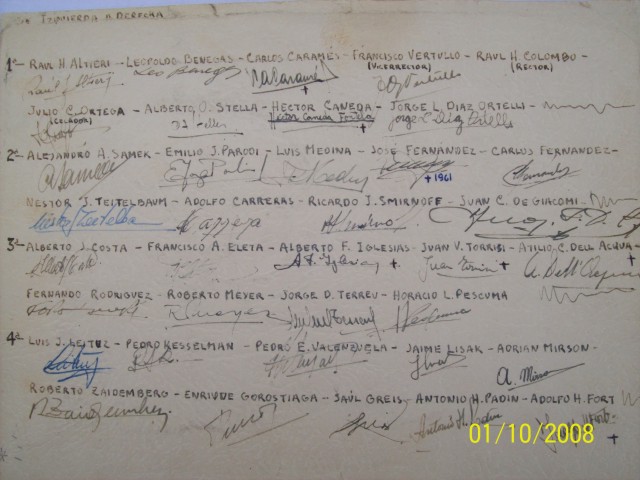 DE IZQUIERDA A DERECHA
1ª- RAUL H ALTIERI - LEOPOLDO BENEGAS - CARLOS CARAMÉS - FRANCISCO VERTULLO - RAUL H. COLOMBO -
(VICERRECTOR) (RECTOR)
Leo Benegas
JULIO C. ORTEGA - ALBERTO O. STELLA - HECTOR CANEDA - JORGE L. DIAZ ORTELLI -
(CELADOR) Jorge L Diaz Ortelli
2ª- ALEJANDRO A. SAMEK - EMILIO J. PARODI - LUIS MEDINA - JOSÉ FERNANDEZ - CARLOS FERNANDEZ -
+ 1961
NESTOR J. TEITELBAUM - ADOLFO CARRERAS - RICARDO J. SMIRNOFF - JUAN C. DE GIACOMI -
3ª- ALBERTO J. COSTA - FRANCISCO A. ELETA - ALBERTO F. IGLESIAS - JUAN V. TORRISI - ATILIO C. DELL ACQUA -
A. F. Iglesias + Juan Torrisi + A. Dell'Acqua +
FERNANDO RODRIGUEZ - ROBERTO MEYER - JORGE D. TERREU - HORACIO L. PESCUMA
R. Meyer
4ª- LUIS J. LEITUZ - PEDRO KESSELMAN - PEDRO E. VALENZUELA - JAIME LISAK - ADRIAN MIRSON -
A. Mirson
ROBERTO ZAIDEMBERG - ENRIVDE GOROSTIAGA - SAÚL GREIS - ANTONIO H. PADIN - ADOLFO H. FORT
R Zaidemberg Antonio H. Padin
01/10/2008